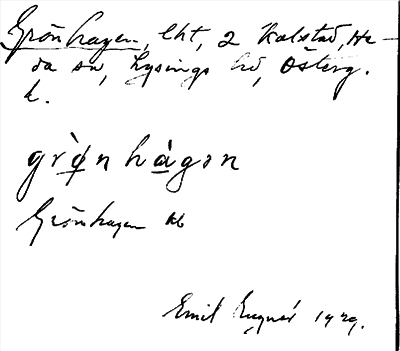 Grönhagen, lht, 2 Kalstad, He-
da sn, Lysings hd, Österg.
l.
grø̀nhàgən
Grönhagen kb
Emil 1929.